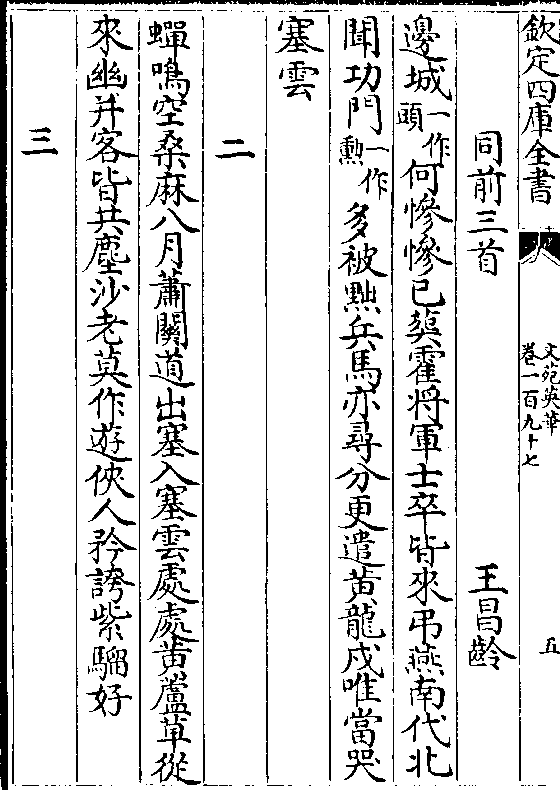 欽定四庫全書
文苑英華
卷一百九十七
五
同前三首 王昌齡
邊城一作頭何慘慘已葬霍将軍士卒皆來弔燕南代北
聞功門一作勲多被黜兵馬亦尋分更遣黄龍戍唯當哭
塞雲
二
蟬鳴空桑麻八月蕭關道出塞入塞雲處處黄蘆草從
來幽并客皆共塵沙老莫作遊俠人矜誇紫騮好
三